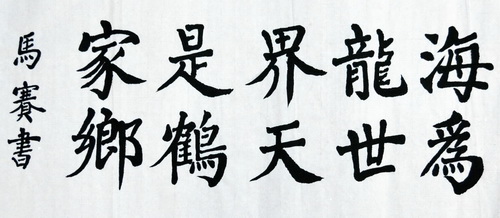 海為
龍世
界天
是鶴
家鄉
馬賽書